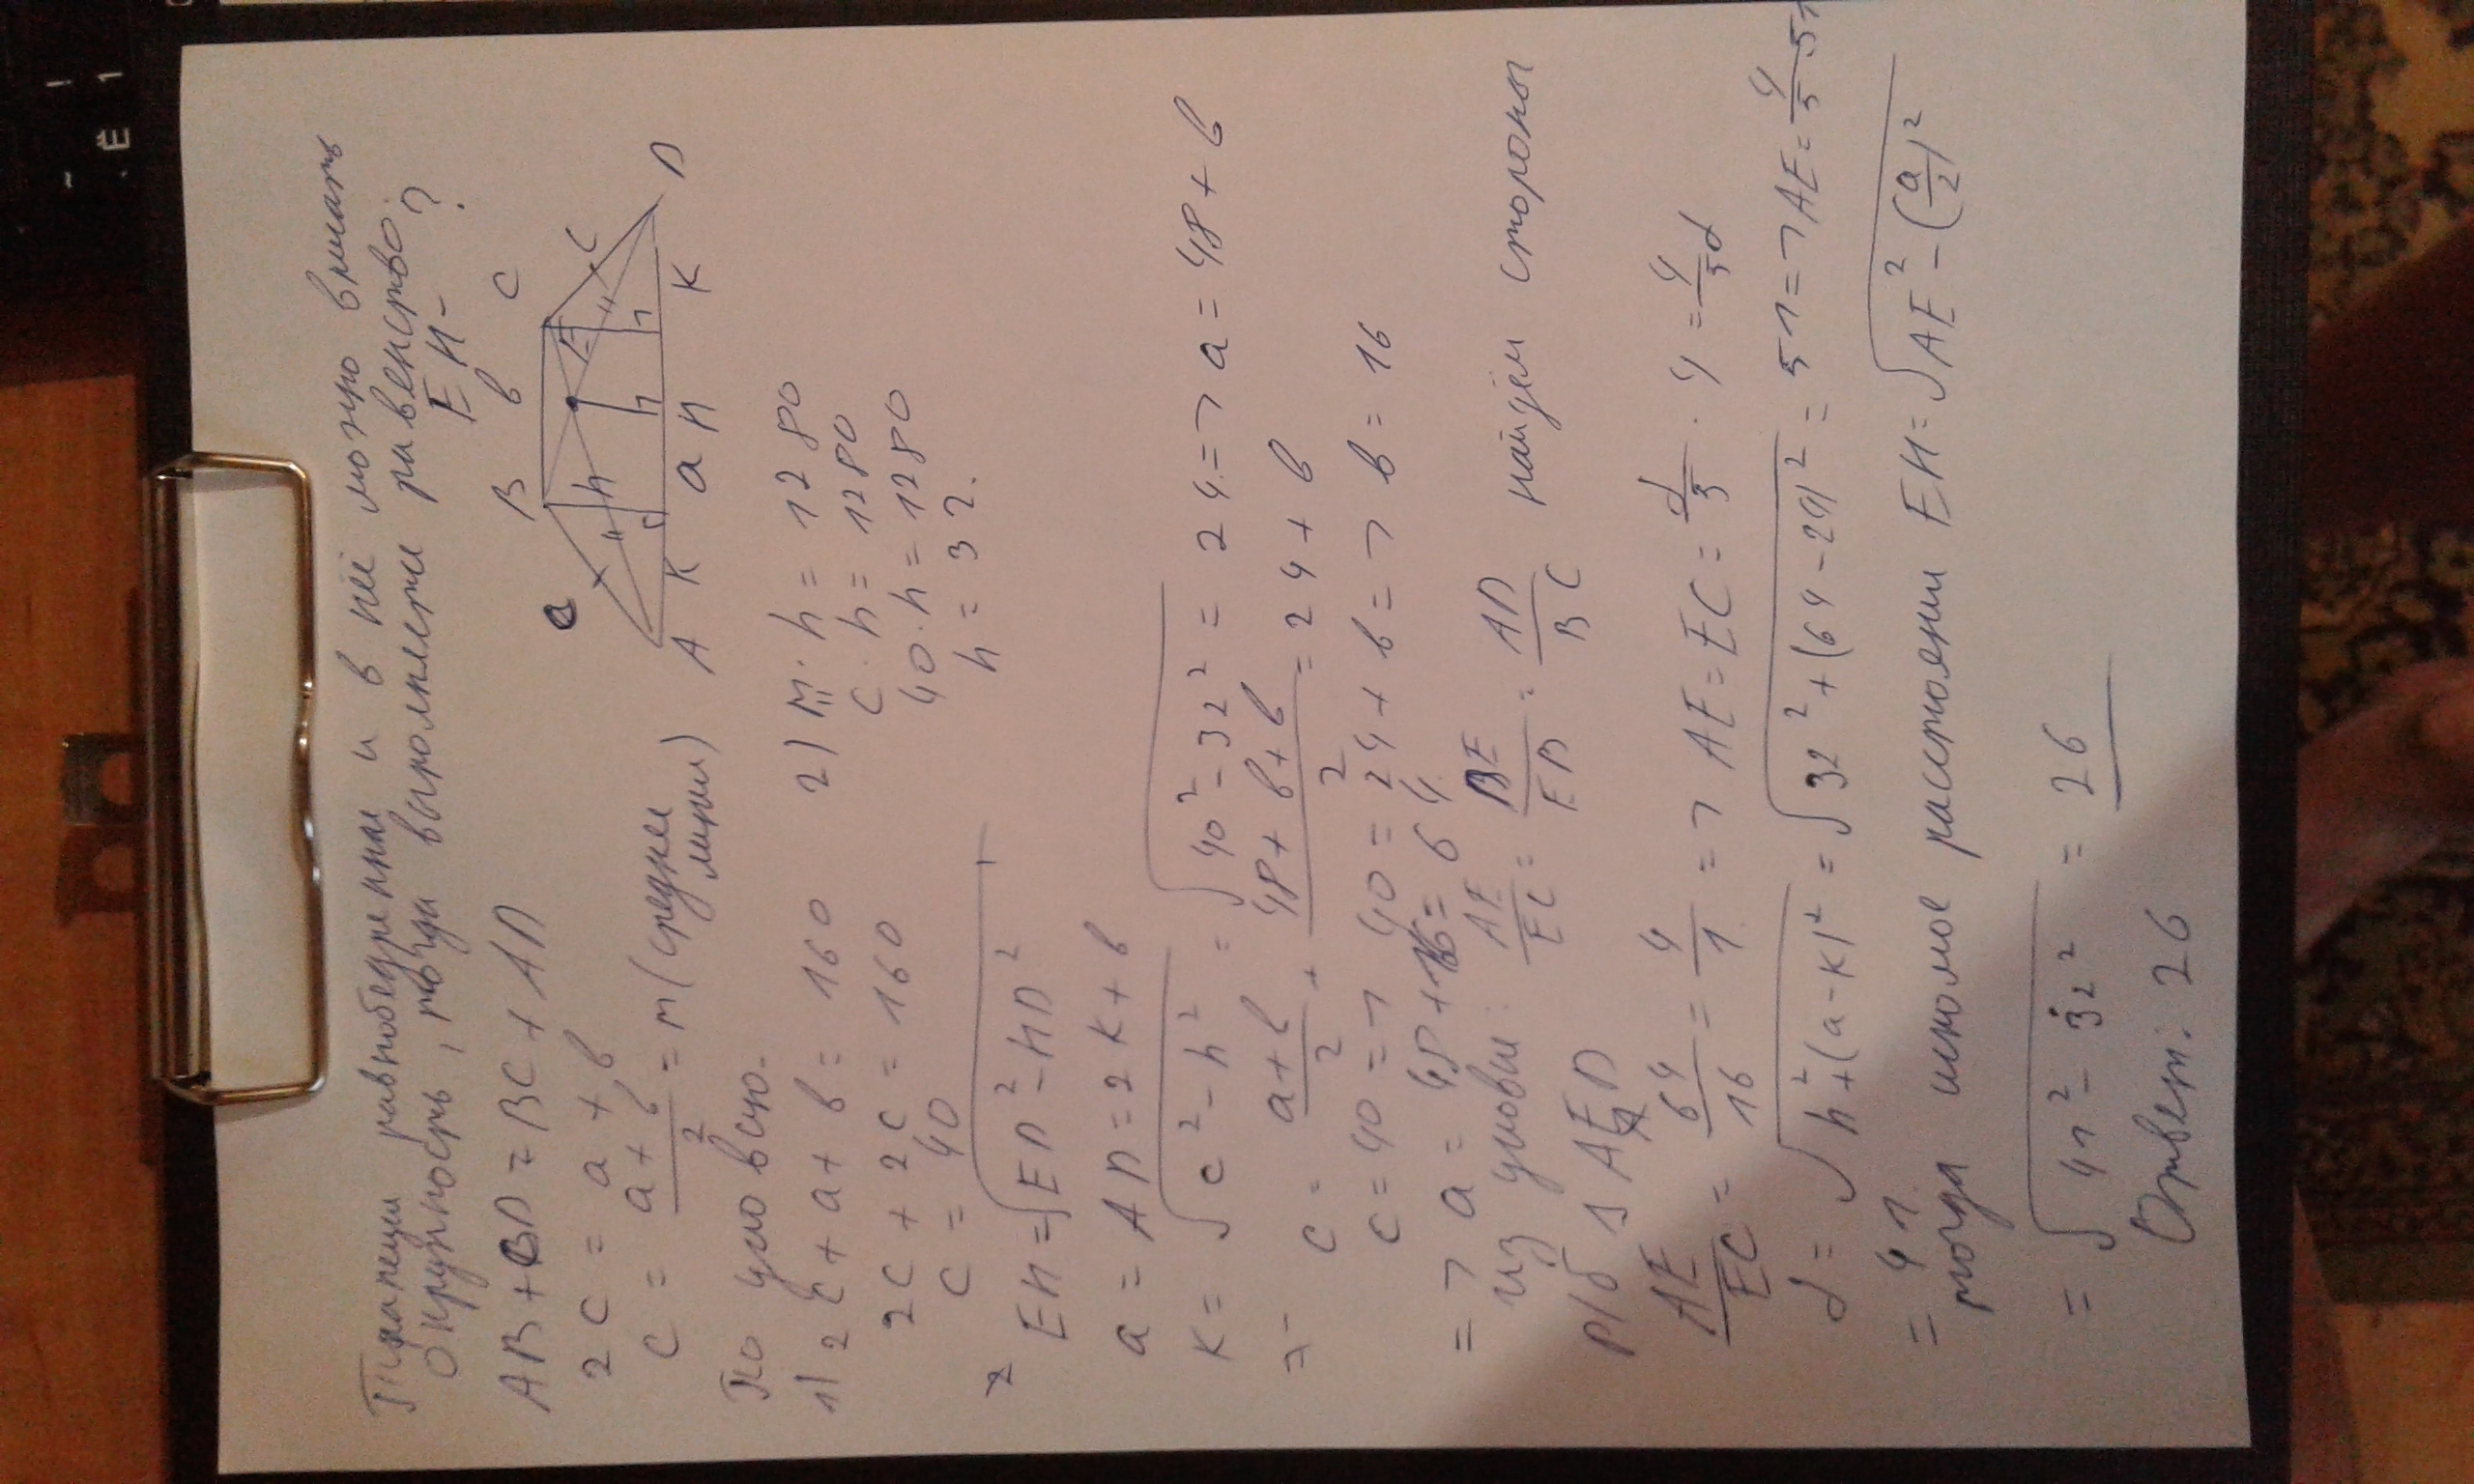 ~ !
Ё 1
Трапеция равнобедренная и в неё можно вписать
окружность, тогда выполняется равенство:
EH - ?
AB + CD = BC + AD
2c = a + b
c = a + b / 2 = m (средняя линия)
B b C
c h E c
A K a H K D
По условию.
1) 2c + a + b = 160
2c + 2c = 160
c = 40
2) m · h = 1280
c · h = 1280
40 · h = 1280
h = 32.
EH = √(ED² - HD²)
a = AD = 2K + b
K = √(c² - h²) = √(40² - 32²) = 24 => a = 48 + b
=> c = (a + b)/2 = (48 + b + b)/2 = 24 + b
c = 40 => 40 = 24 + b => b = 16
=> a = 48 + 16 = 64.
из условия: AE/EC = BE/ED = AD/BC найдём стороны
р/б Δ AED
AE/EC = 64/16 = 4/1 => AE = EC = d/5 · 4 = 4/5 d
d = √(h² + (a - K)²) = √(32² + (64 - 24)²) = 51 => AE = 4/5 · 51
= 41.
тогда искомое расстояние EH = √(AE² - (a/2)²)
= √(41² - 32²) = 26
Ответ: 26